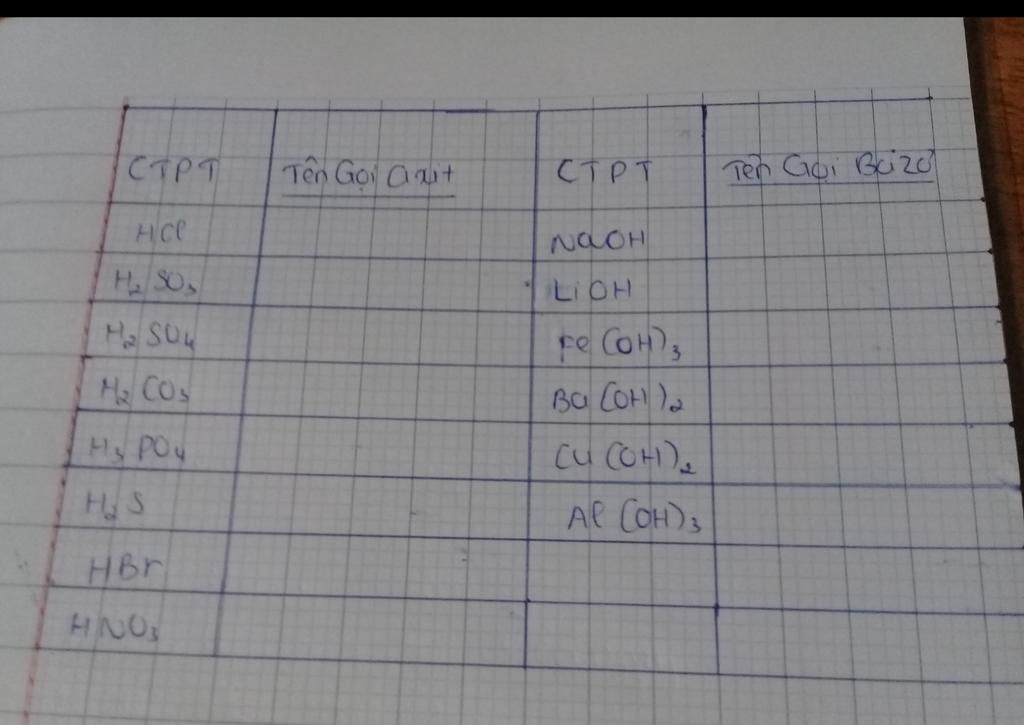 CTPT Tên Gọi axit CTPT Tên Gọi Bazơ
HCl NaOH
H₂SO₃ LiOH
H₂SO₄ Fe(OH)₃
H₂CO₃ Ba(OH)₂
H₃PO₄ Cu(OH)₂
H₂S Al(OH)₃
HBr
HNO₃